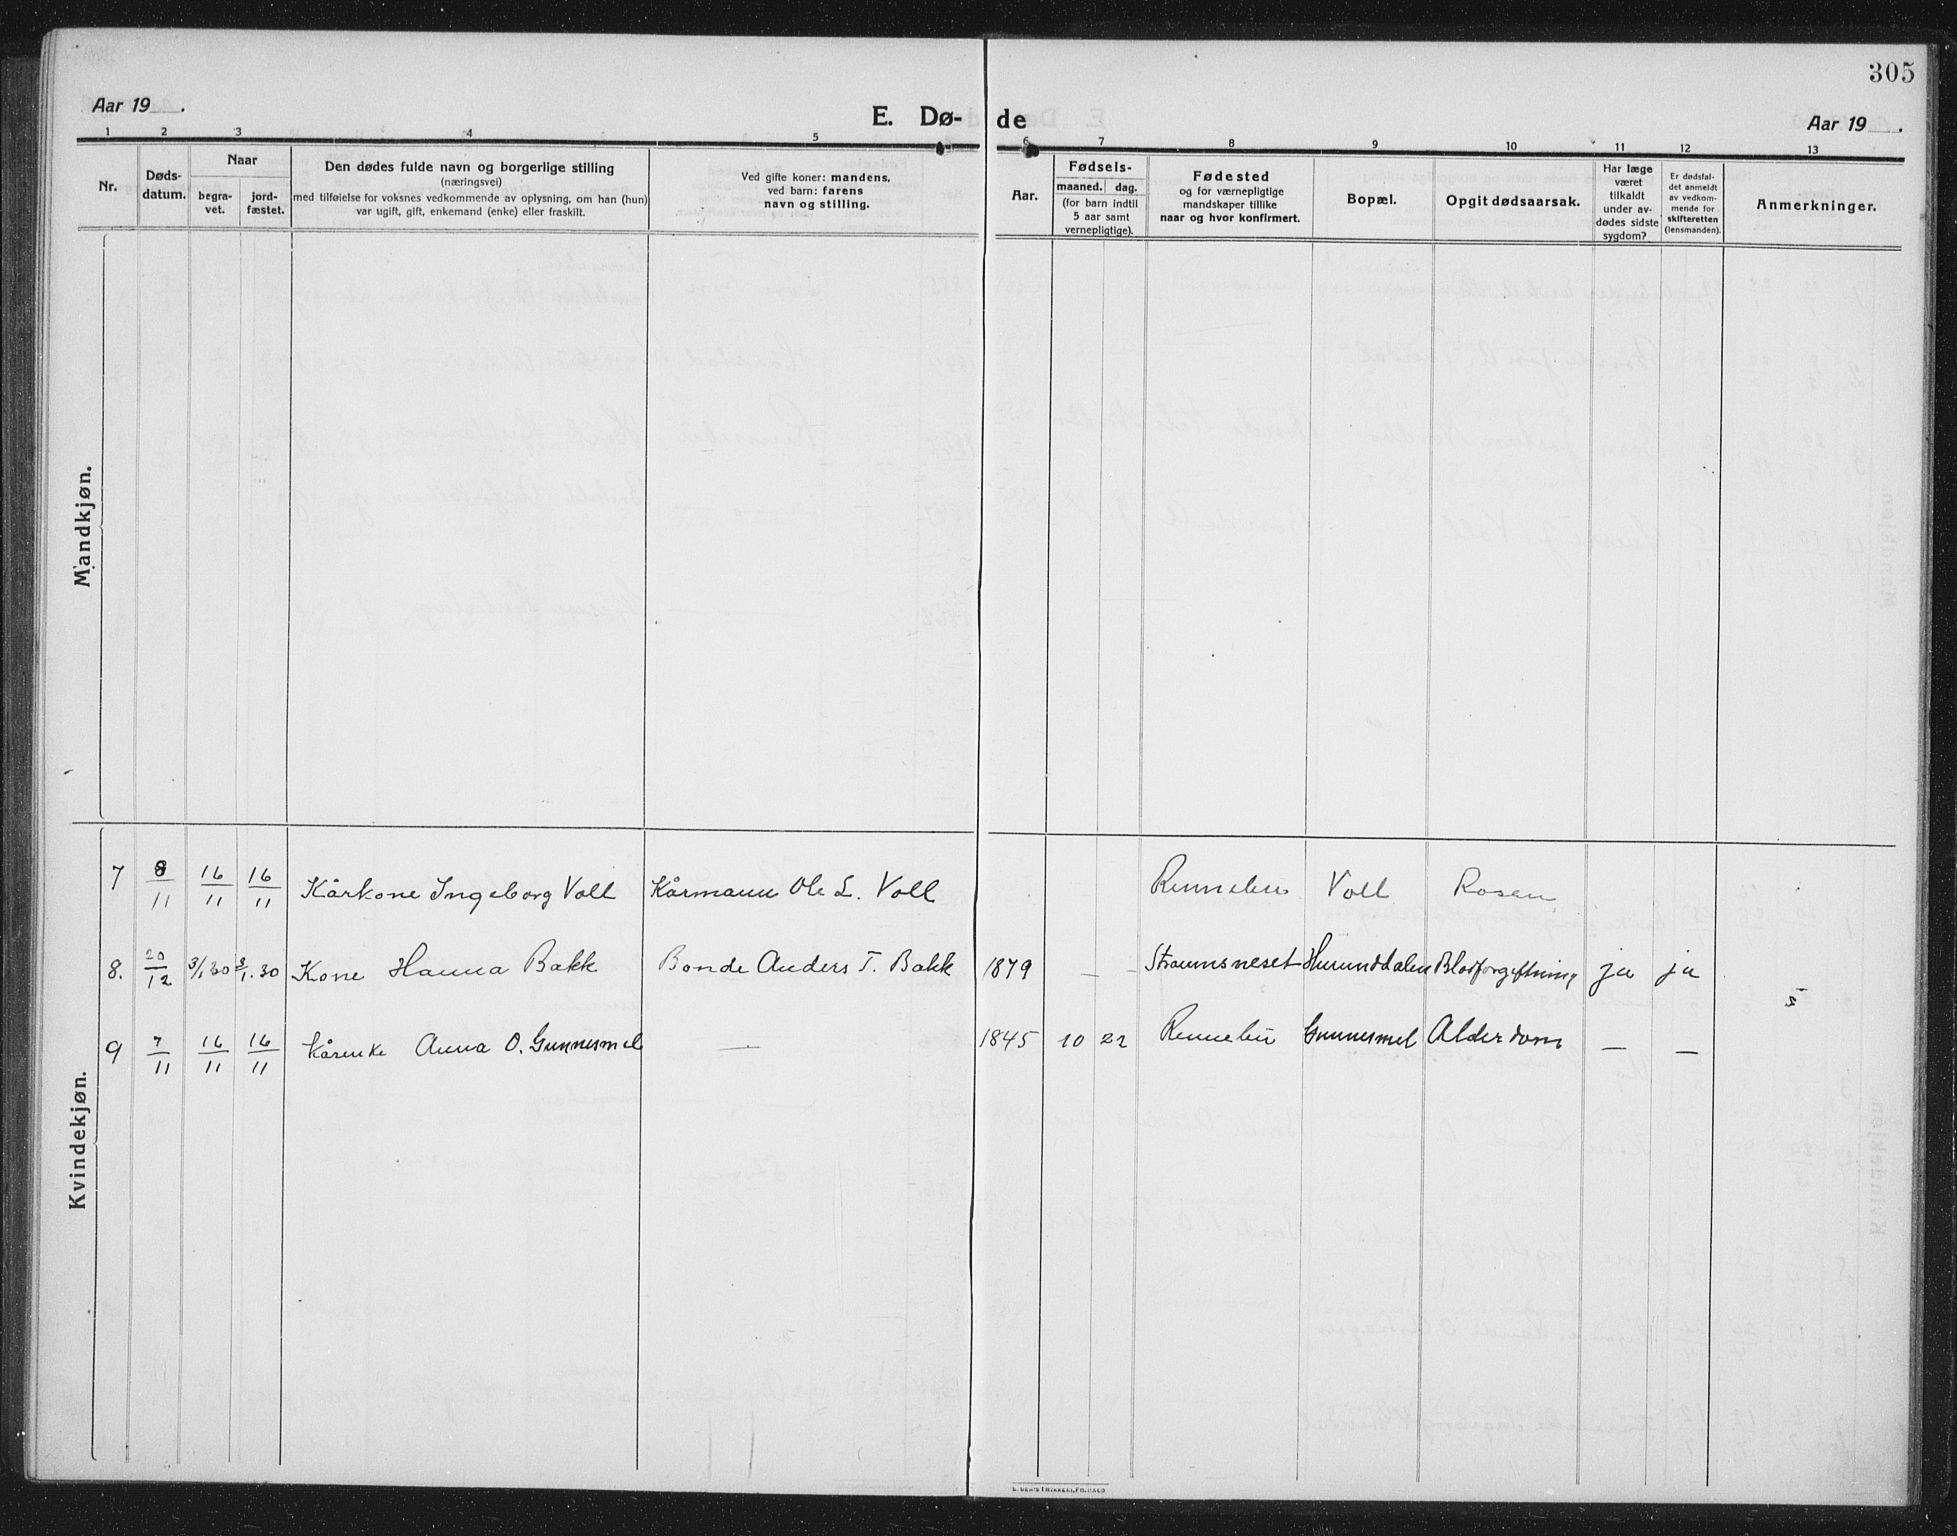 305
Aar 19 .
E. Dø-
de
Aar 19 .
1 2 3 4 5 6 7 8 9 10 11 12 13
Nr.
Døds-
datum.
Naar
begra-
vet.
jord-
fæstet.
Den dødes fulde navn og borgerlige stilling
(næringsvei)
med tilføielse for voksnes vedkommende av oplysning, om han (hun)
var ugift, gift, enkemand (enke) eller fraskilt.
Ved gifte koner: mandens,
ved barn: farens
navn og stilling.
Aar.
Fødsels-
maaned. dag.
(for barn indtil
5 aar samt
vernepligtige).
Fødested
og for værnepligtige
mandskaper tillike
naar og hvor konfirmert.
Bopæl.
Opgit dødsaarsak.
Har læge
været
tilkaldt
under av-
dødes sidste
sygdom?
Er dødsfal-
det anmeldt
av vedkom-
mende for
skifteretten
(lensmanden).
Anmerkninger.
Mandkjøn.
Kvindekjøn.
7 8/11 16/11 16/11 Kårkone Ingeborg Voll Kårmann Ole L. Voll Rennebu Voll Rosen
8. 20/12 3/1 30 3/1. 30 Kone Hanna Bakk Bonde Anders T. Bakk 1879 — — Straumsneset Hurunddalen Blodforgiftning ja ja
9 7/11 16/11 16/11 Kårenke Anna O. Gunnesmel — 1845 10 22 Rennebu Gunnesmel Alderdom — —